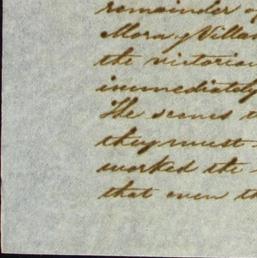 remainder of
Mora y Villam
the victorious
immediately
The scenes t
they must
worked the
that even th